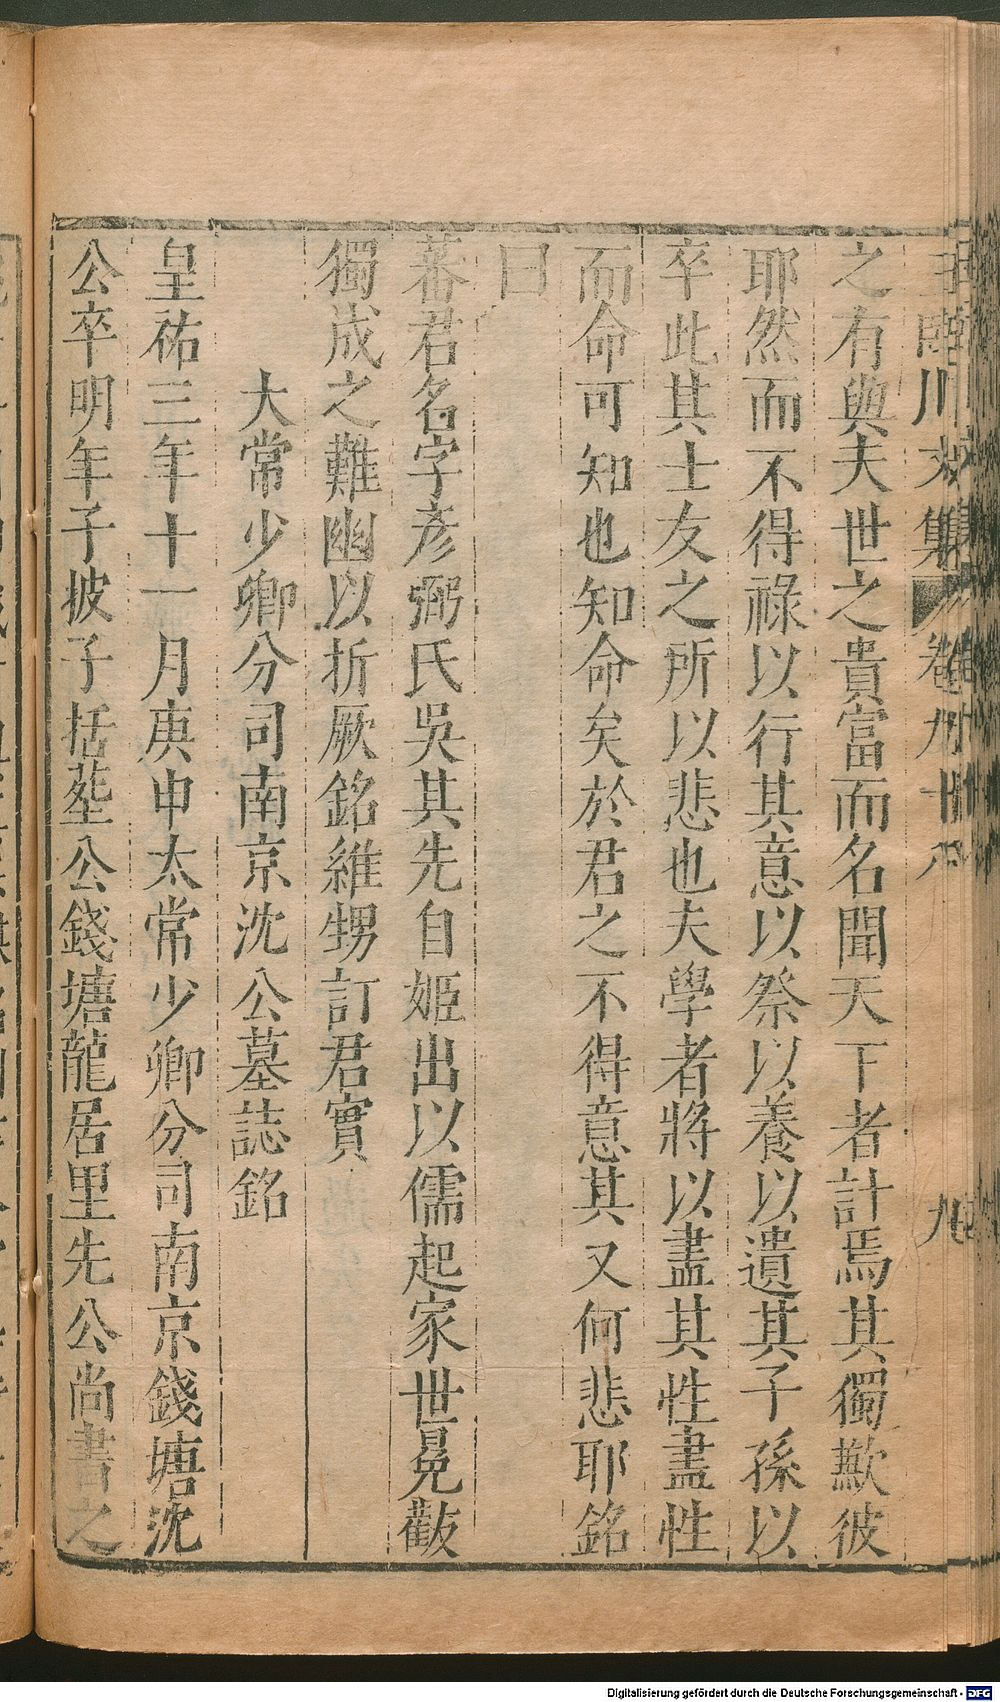 王臨川文集 卷九十八 九
之有與夫世之貴富而名聞天下者計焉其獨歉彼
耶然而不得祿以行其意以祭以養以遺其子孫以
卒此其士友之所以悲也夫學者將以盡其性盡性
而命可知也知命矣於君之不得意其又何悲耶銘
曰
蕃君名字彥弼氏吳其先自姬出以儒起家世冕黻
獨成之難幽以折厥銘維甥訂君實
大常少卿分司南京沈公墓誌銘
皇祐三年十一月庚申太常少卿分司南京錢塘沈
公卒明年子披子括塟公錢塘龍居里先公尚書之
Digitalisierung gefördert durch die Deutsche Forschungsgemeinschaft - DFG